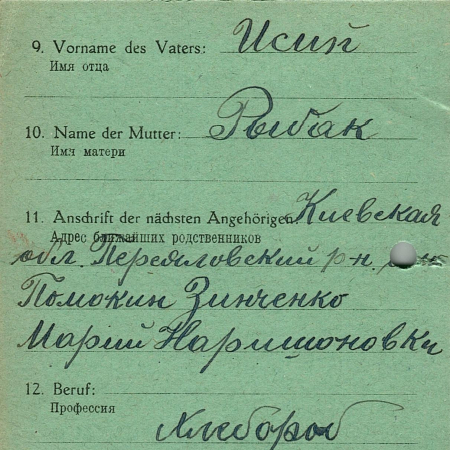 9. Vorname des Vaters: Исий
Имя отца
10. Name der Mutter: Рыбак
Имя матери
11. Anschrift der nächsten Angehörigen: Киевская
Адрес ближайших родственников
обл. Переяловский рн.
Помокин Зинченко
Марий Наришоновки
12. Beruf:
Профессия
Хлебороб